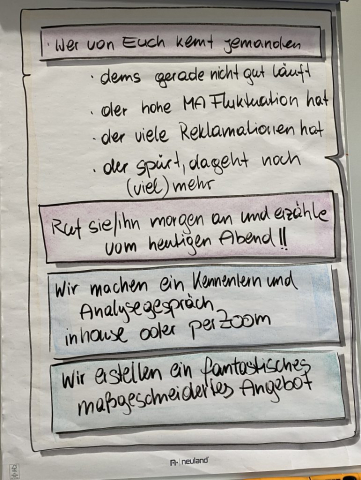 · Wer von Euch kennt jemanden
· dems gerade nicht gut läuft
· der hohe MA Fluktuation hat
· der viele Reklamationen hat
· der spürt, da geht noch
(viel) mehr
Ruf sie/ihn morgen an und erzähle
vom heutigen Abend!!
Wir machen ein Kennenlern und
Analysegespräch
inhouse oder per Zoom
Wir erstellen ein fantastisches
maßgeschneidertes Angebot
neuland